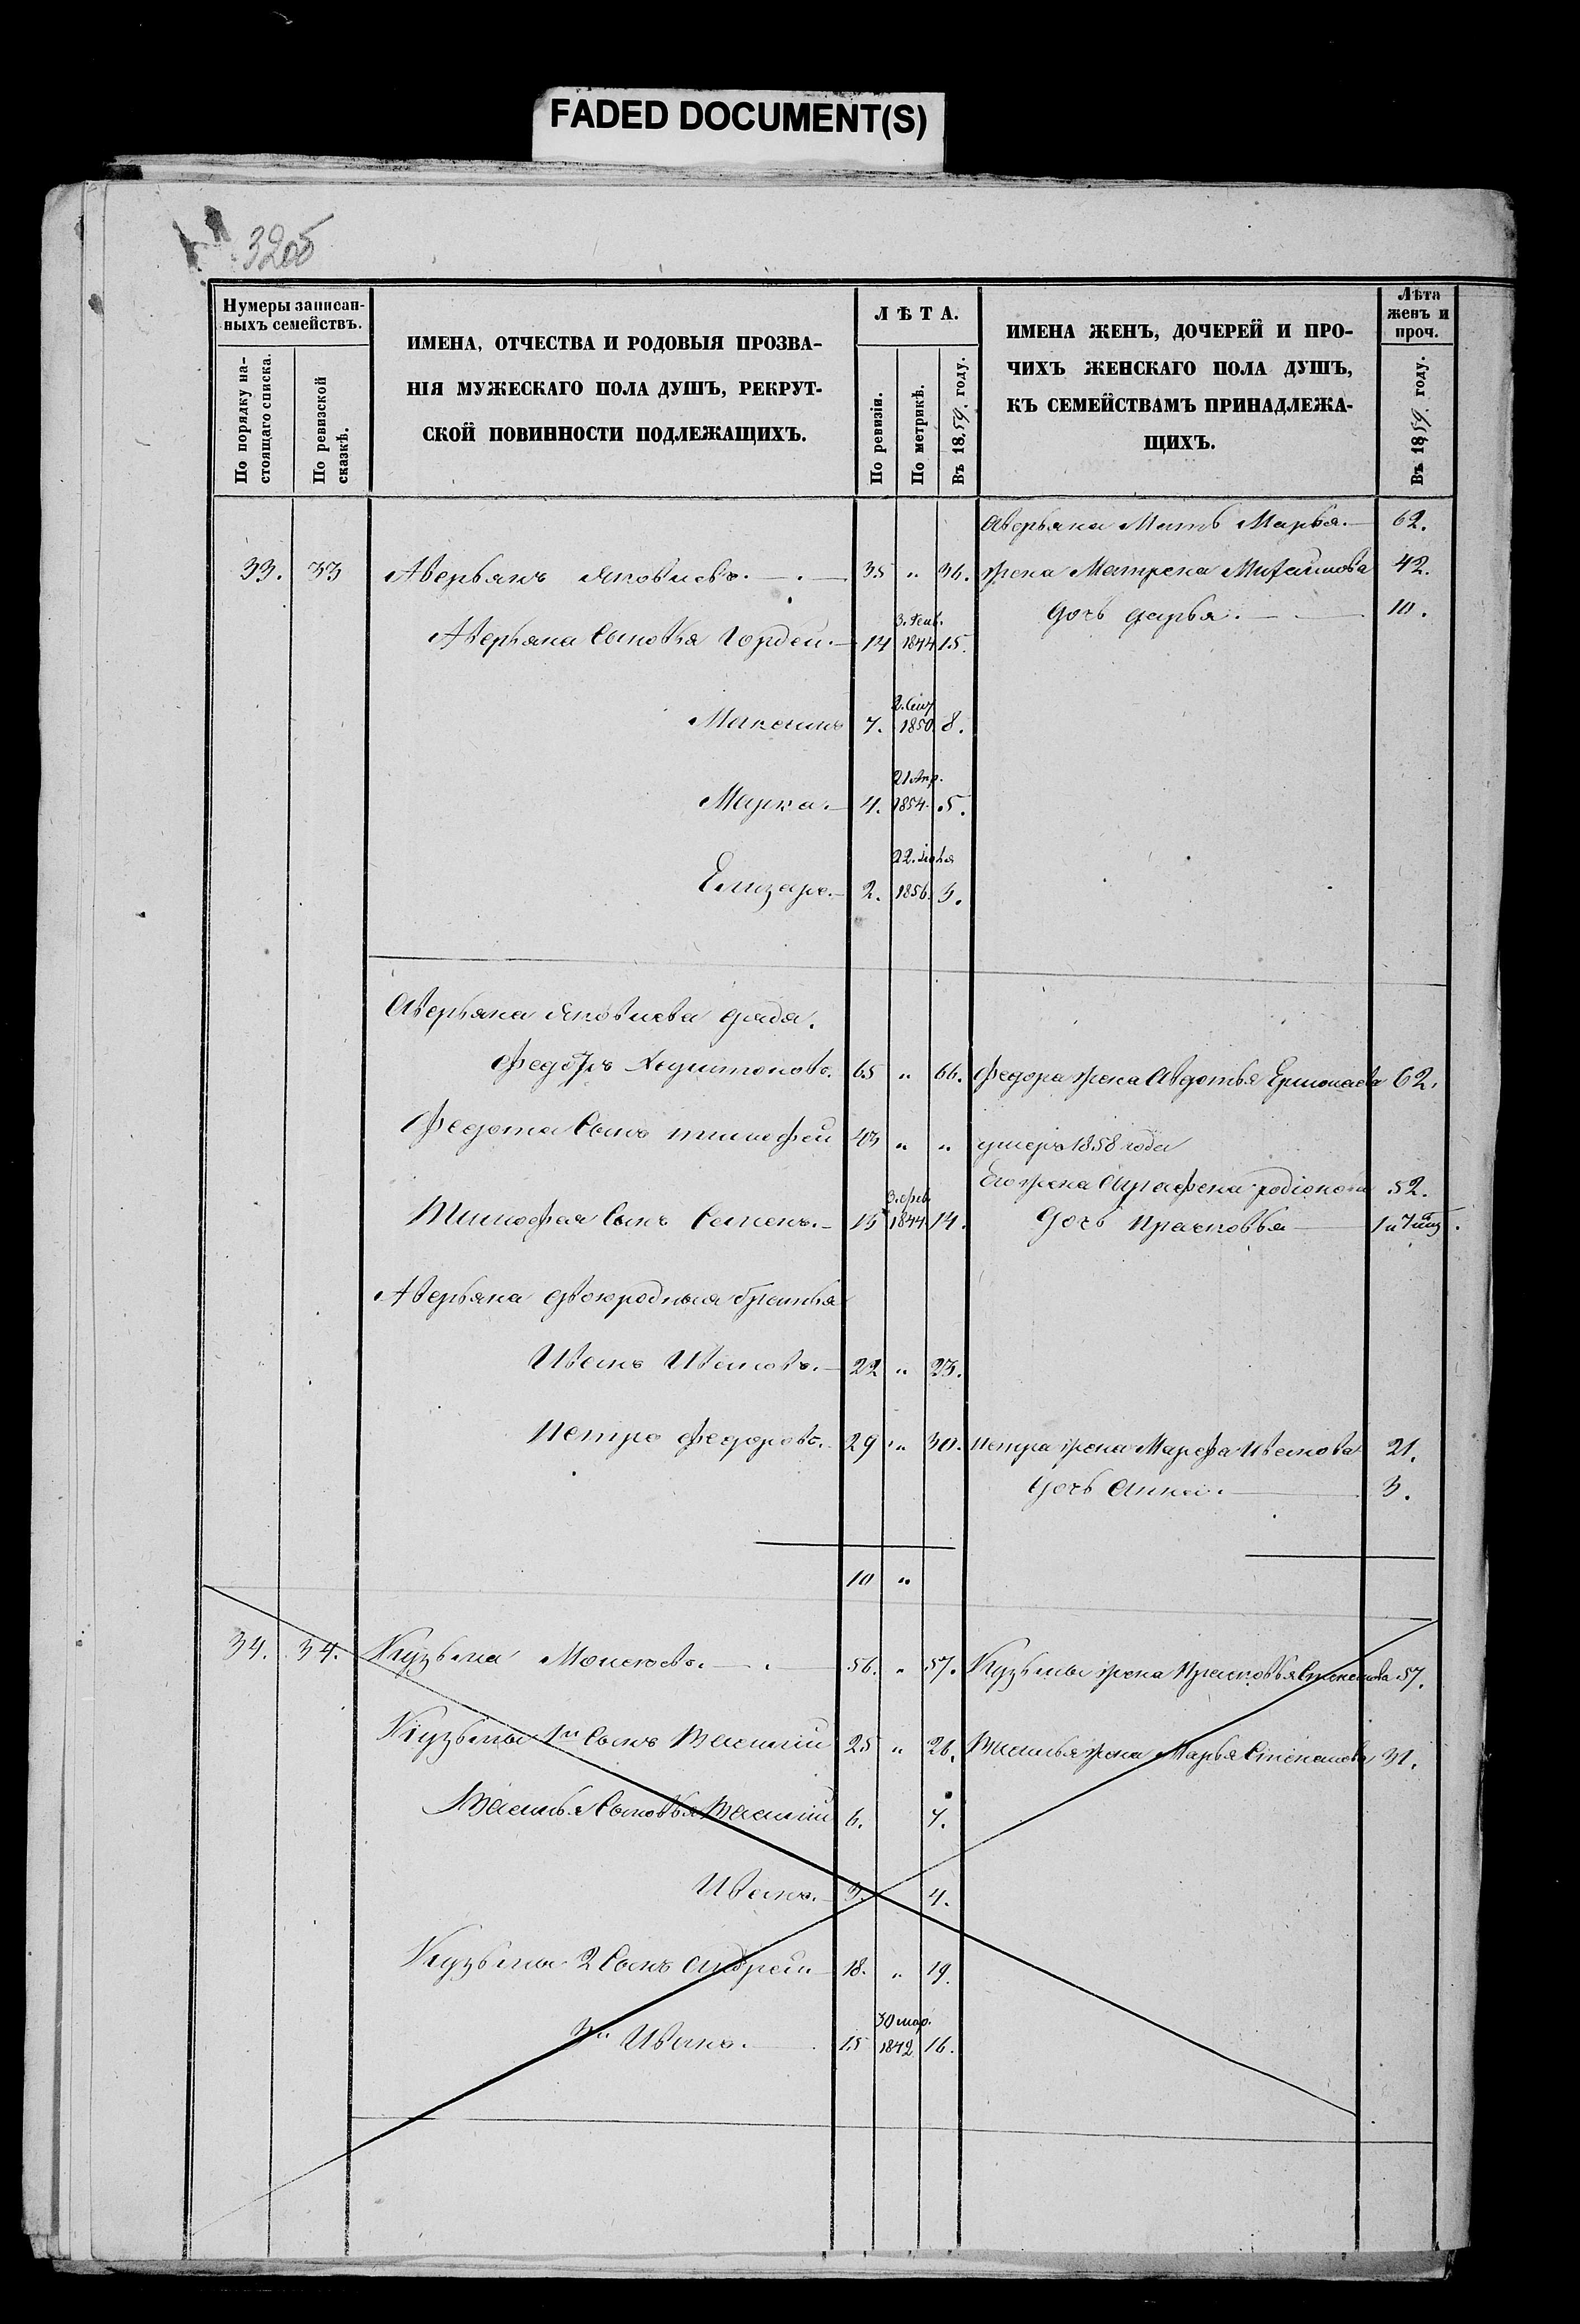 FADED DOCUMENT(S)
32об
Нумеры записан-
ныхъ семействъ.
По порядку на-
стоящаго списка.
По ревизской
сказкѣ.
ИМЕНА, ОТЧЕСТВА И РОДОВЫЯ ПРОЗВА-
НІЯ МУЖЕСКАГО ПОЛА ДУШЪ, РЕКРУТ-
СКОЙ ПОВИННОСТИ ПОДЛЕЖАЩИХЪ.
ЛѢТА.
По ревизіи.
По метрикѣ.
Въ 1859. году.
ИМЕНА ЖЕНЪ, ДОЧЕРЕЙ И ПРО-
ЧИХЪ ЖЕНСКАГО ПОЛА ДУШЪ,
КЪ СЕМЕЙСТВАМЪ ПРИНАДЛЕЖА-
ЩИХЪ.
Лѣта
женъ и
проч.
Въ 1859. году.
Аверьяна Мать Марья. 62.
33. 33 Аверьянъ Яковлевъ. 35 " 36. жена Матрена Михайлова 42.
Дочь Дарья. 10.
Аверьяна сыновья Гордей. 14 3. Генв. 1844 15.
Максимъ 7. 2. Сент 1850. 8.
Марка. 4. 21 Апр. 1854. 5.
Елизаръ. 2. 22. Іюля 1856. 3.
Аверьяна Яковлева дядя.
Федотъ Харитоновъ. 65 " 66. Федора жена Авдотья Ермолаева 62.
Федота сынъ Тимофей 43 " " умеръ 1858 года
Его жена Аграфена Родіонова 52.
Тимофея сынъ Семенъ. 13 3. фев. 1844 14. Дочь Прасковья 1 и 7 мѣс.
Аверьяна двоюродныя братья
Иванъ Ивановъ. 22 " 23.
Петръ Федоровъ. 29 " 30. Петра жена Марфа Иванова 21.
Дочь Анна. 3.
10 "
34. 34. Кузьма Моисеевъ. 56. " 57. Кузьмы жена Прасковья Степанова 57.
Кузьмы 1й сынъ Василий 25 " 26. Василья жена Марья Степанова 31.
Василья сыновья Василий 6. 7.
Иванъ. 3. 4.
Кузьмы 2 сынъ Андрей 18. " 19.
3й Иванъ. 15 30 мар. 1842 16.